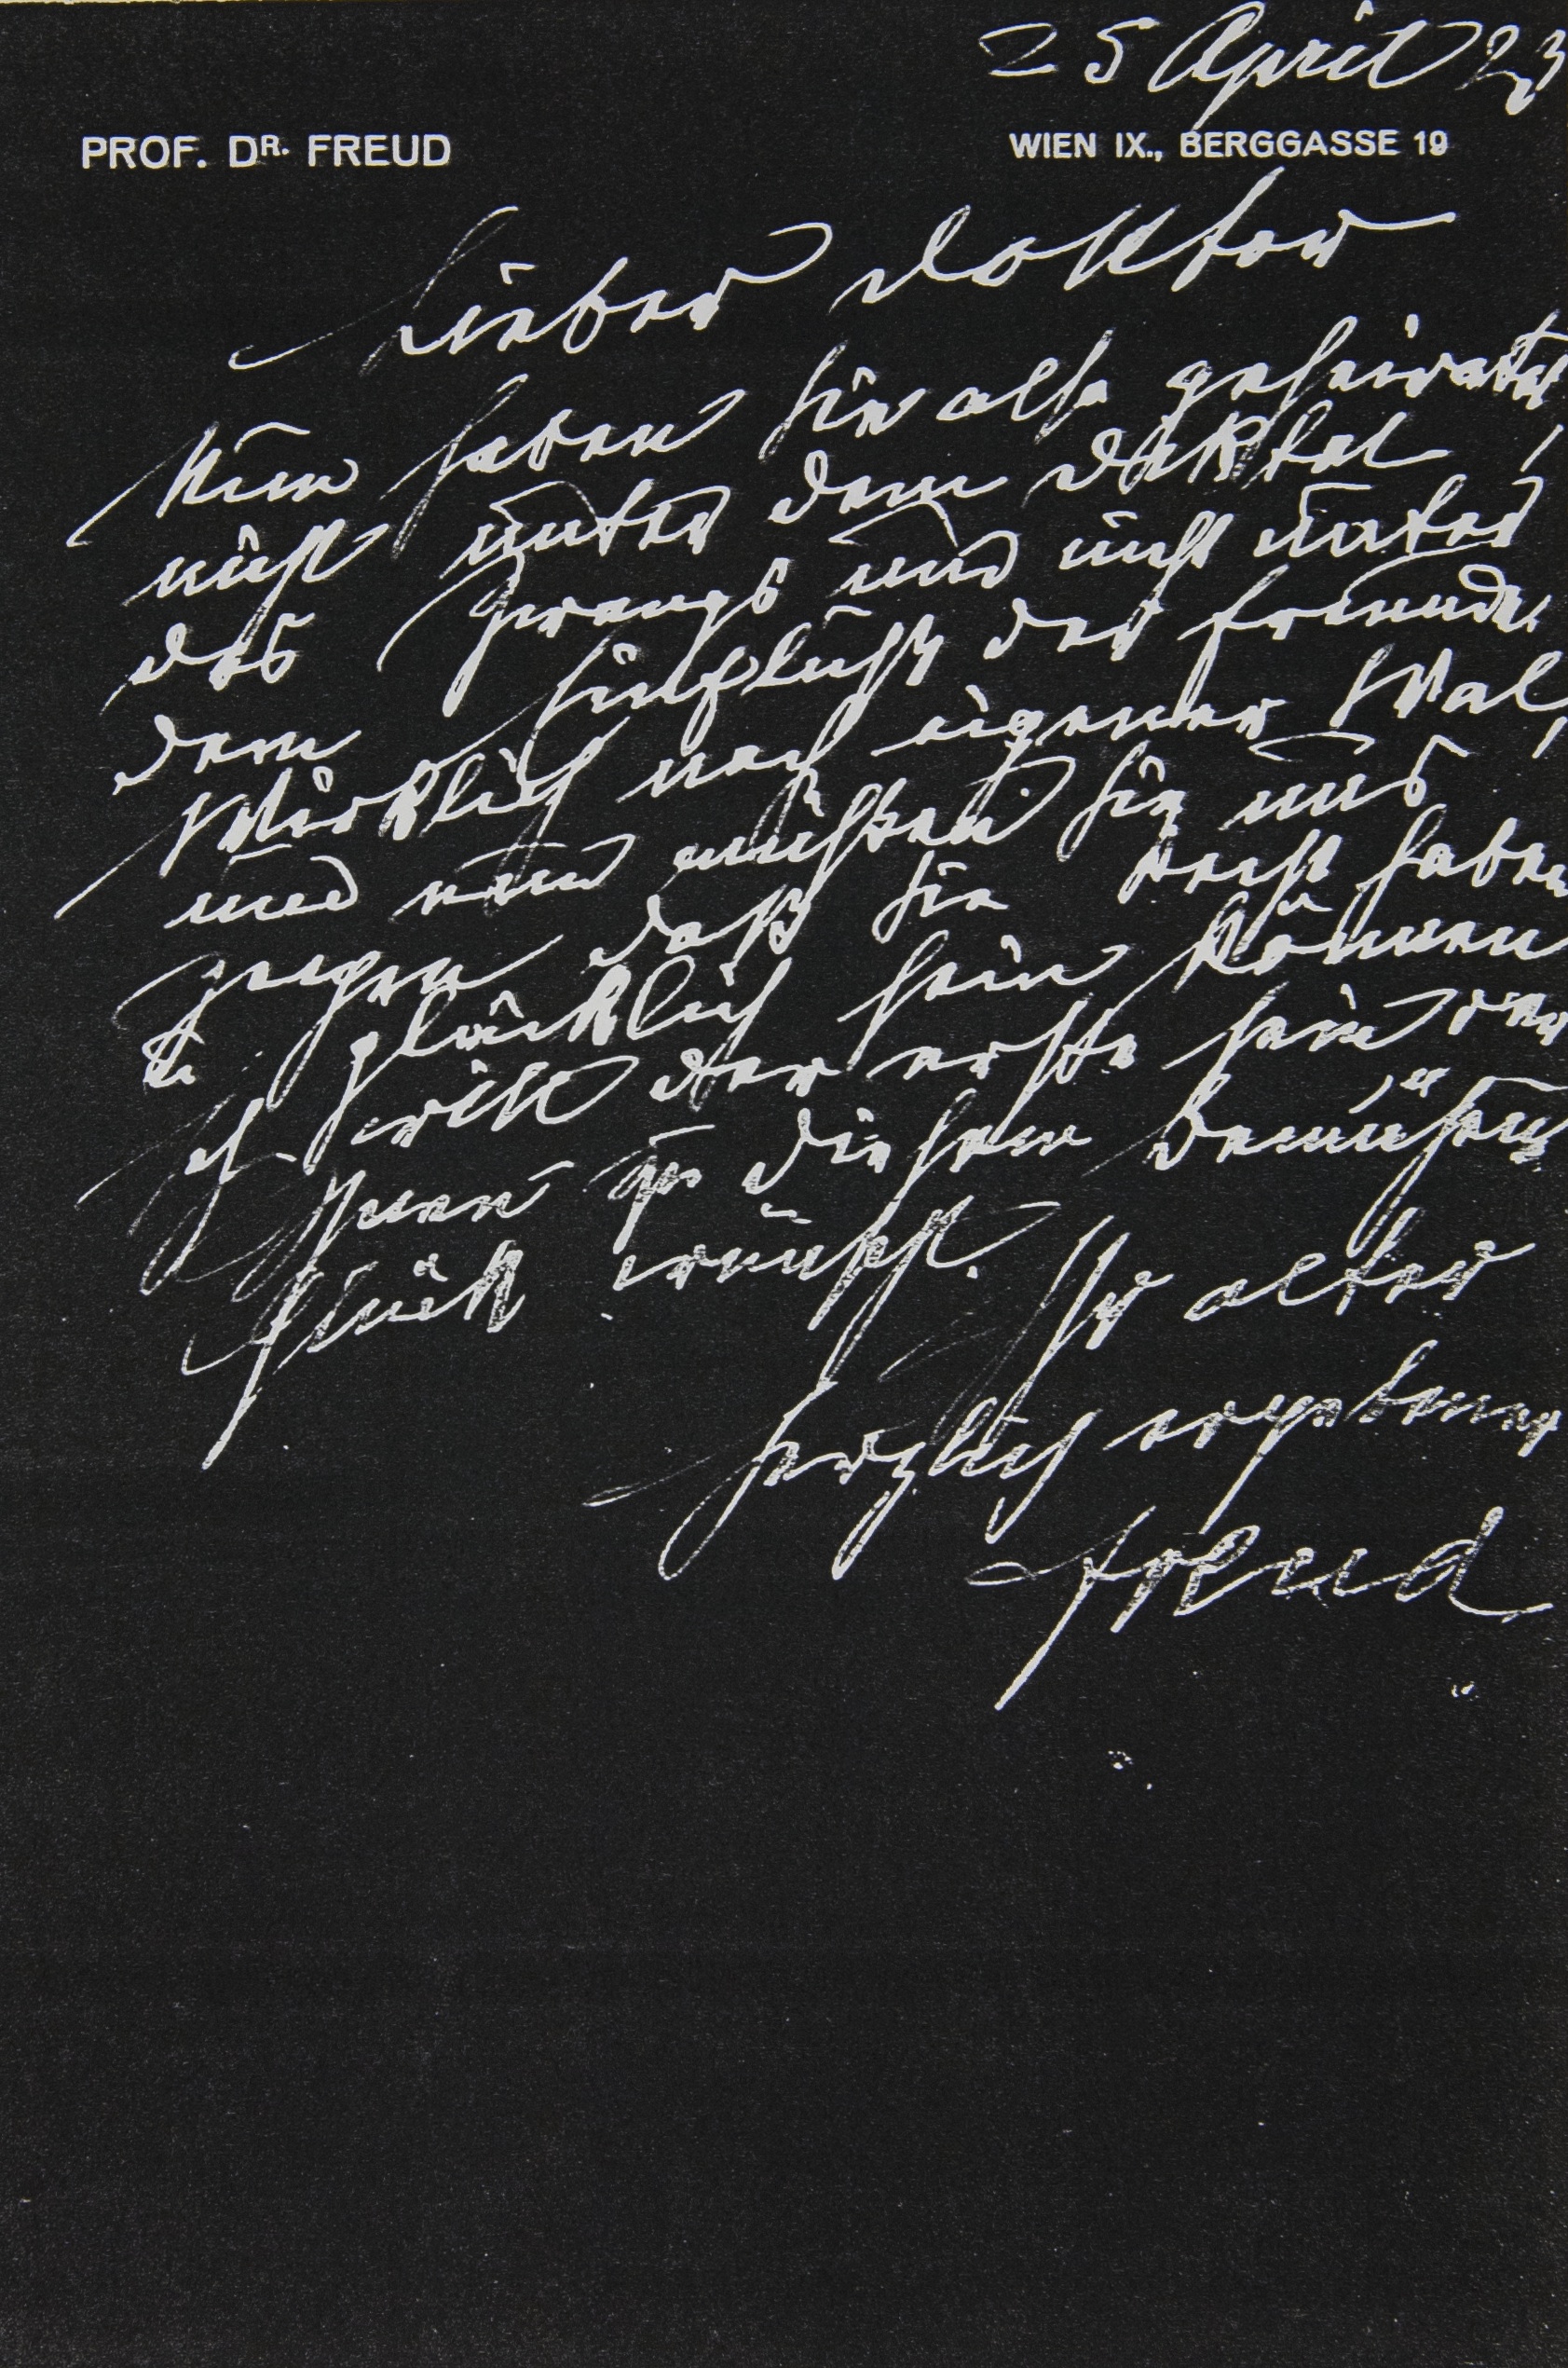 25 April 23
PROF. DR. FREUD WIEN IX., BERGGASSE 19
Lieber Doktor
Nun haben Sie also geheiratet
nicht unter dem Diktat
des Zwangs und nicht unter
dem Einfluß der Freunde
Wirklich nach eigener Wal
und nun müßen Sie uns
zeigen daß Sie recht haben
u glücklich sein können
Ich will der erste sein der
Ihnen zu diesem Bemühen
Glück wünscht.
Ihr alter
herzlich ergebener
Freud